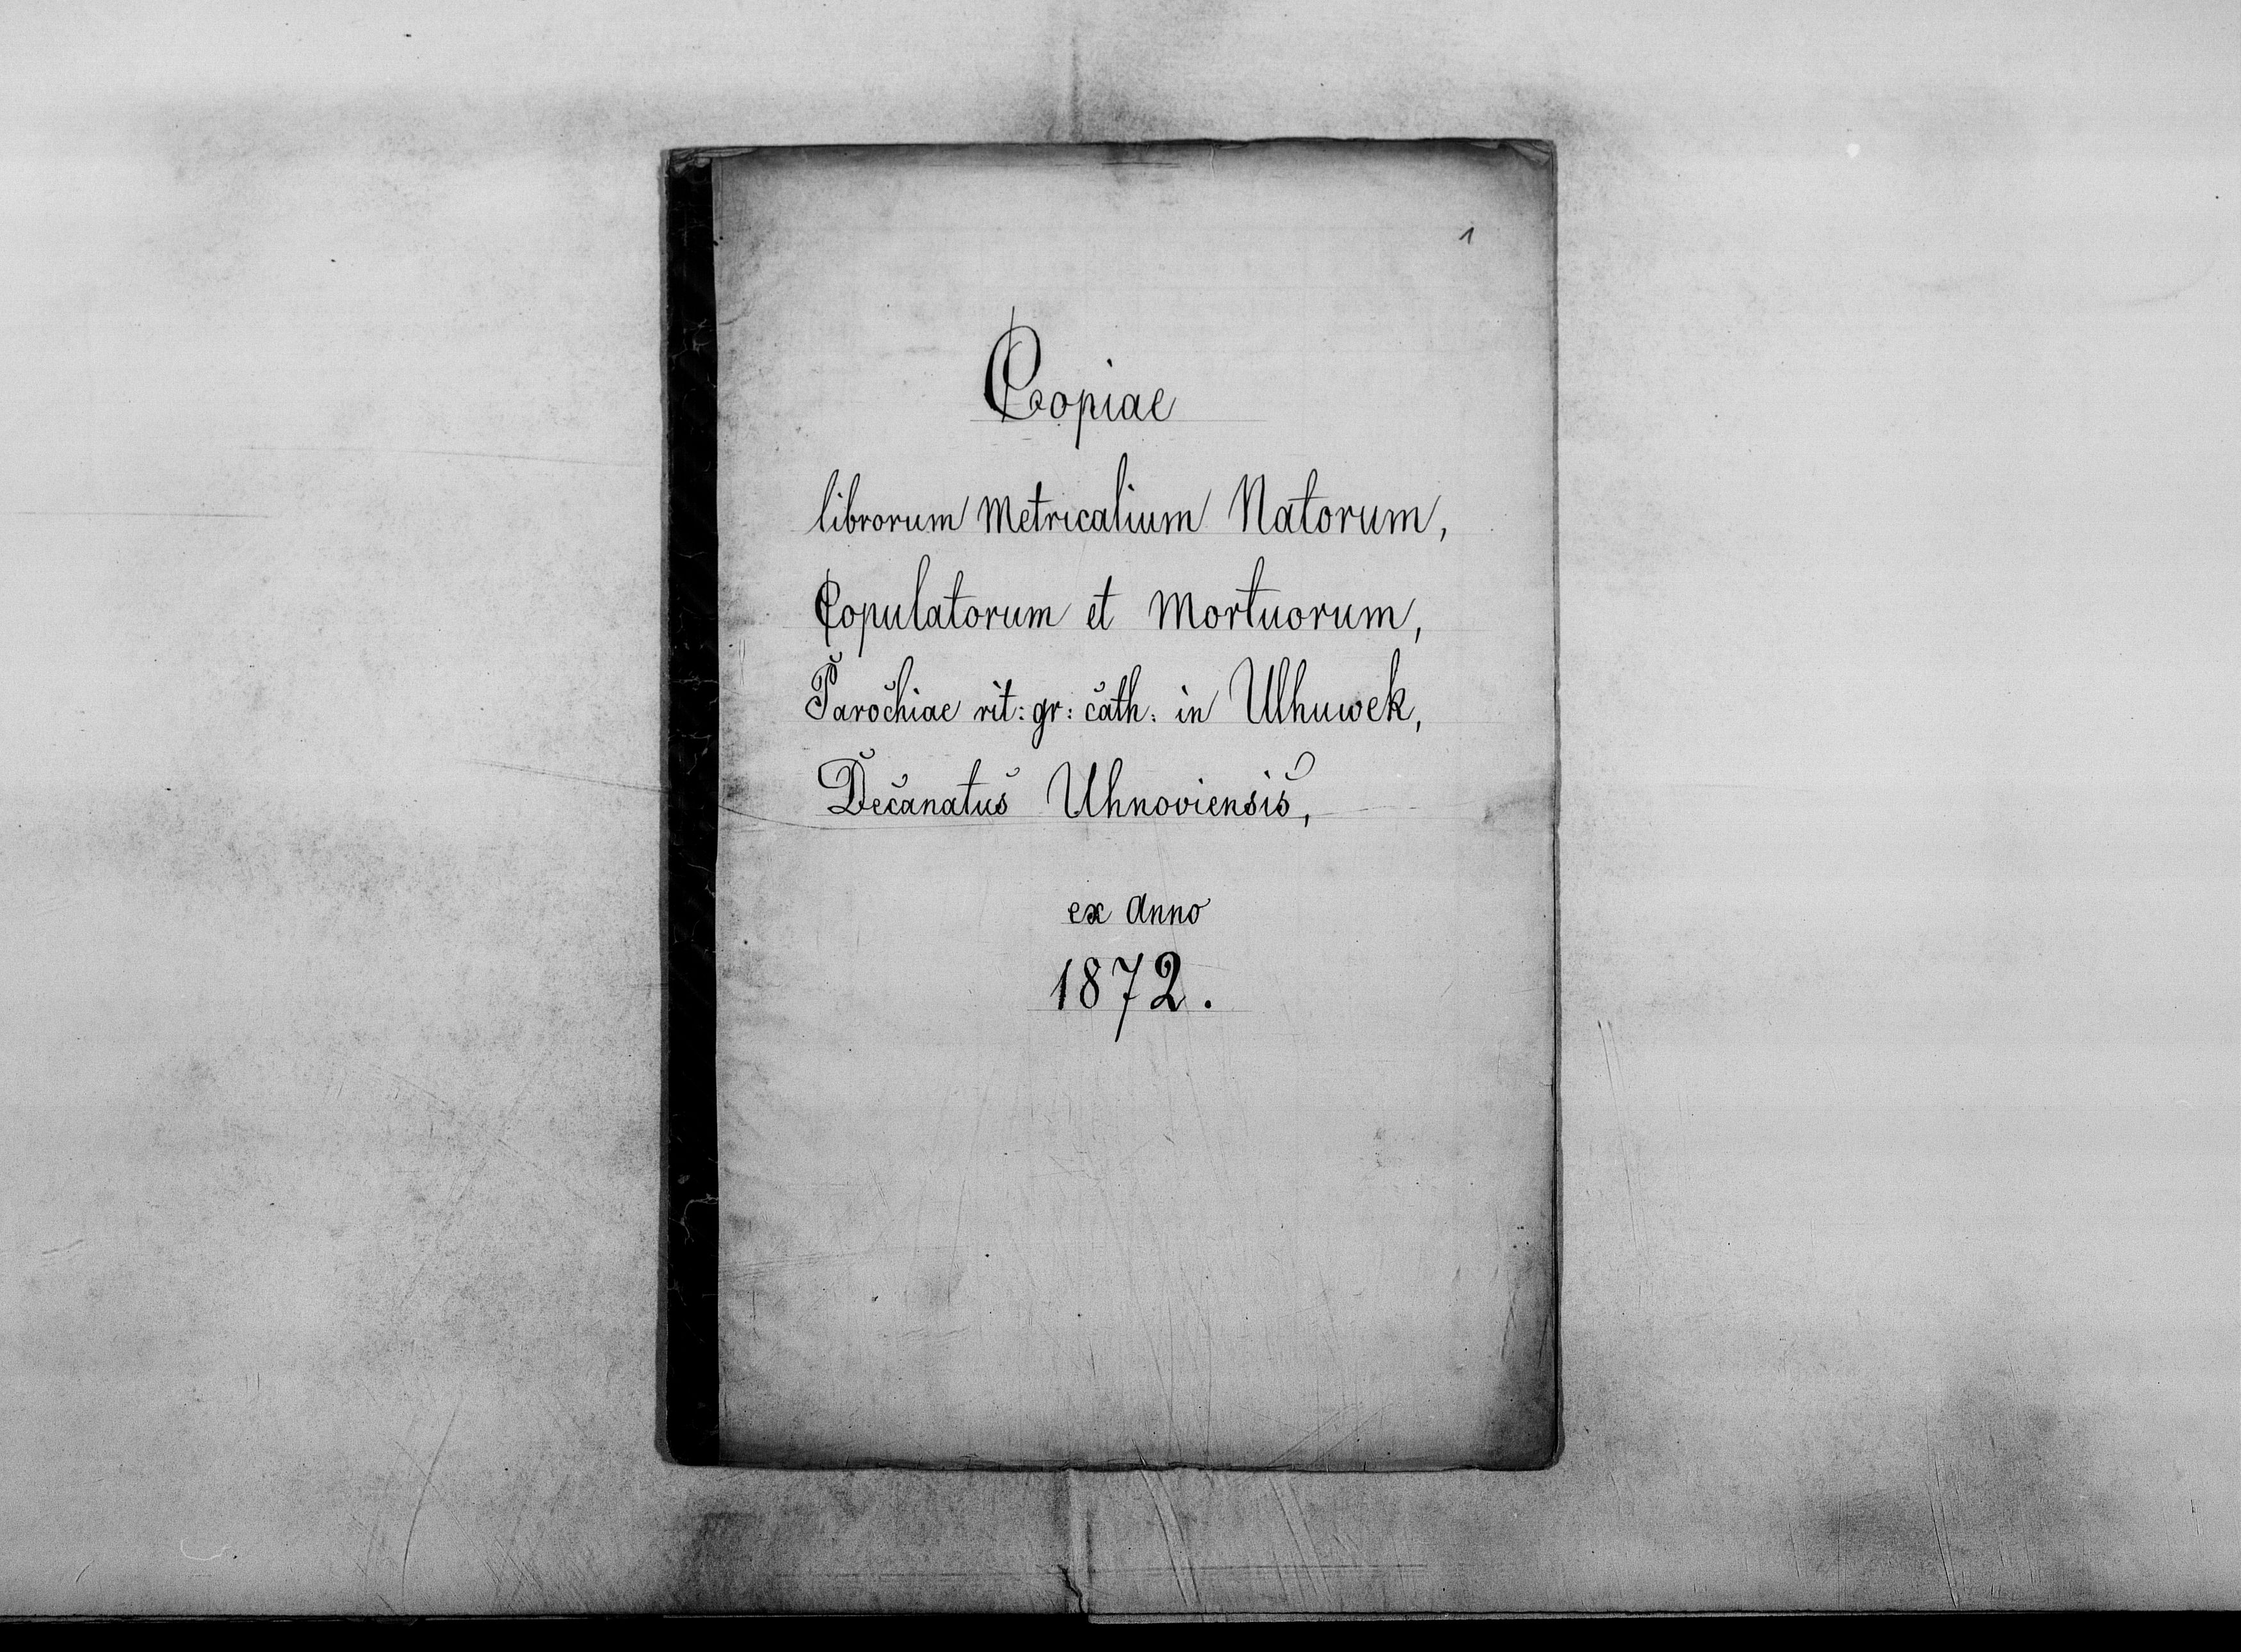 1
Copiae
librorum Metricalium Natorum,
Copulatorum et Mortuorum,
Parochiae rit: gr: cath: in Ulhuwek,
Decanatus Uhnoviensis,
ex Anno
1872.